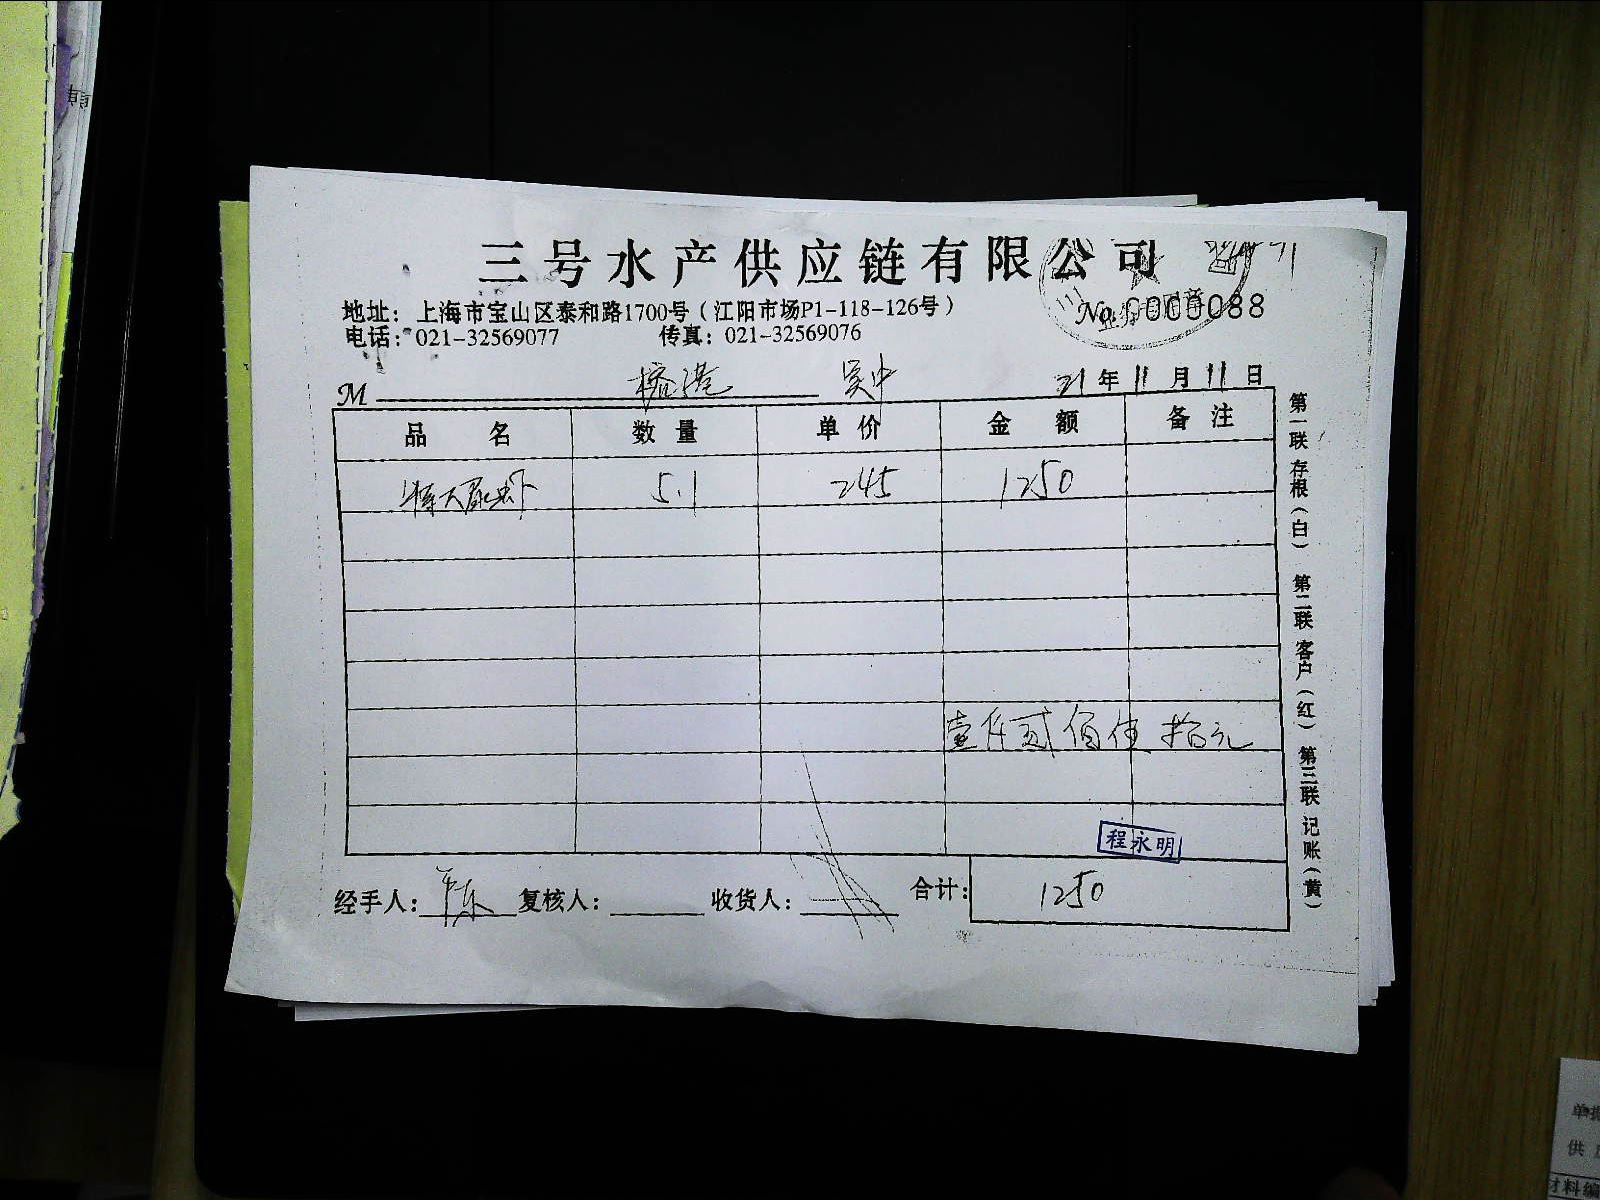 三号水产供应链有限公司
地址：上海市宝山区泰和路1700号（江阳市场P1-118-126号）
No. 0000088
电话：021-32569077 传真：021-32569076
M 榕港 吴中 21年11月11日
品名 数量 单价 金额 备注
特大 虾 5.1 245 1250
壹仟贰佰伍拾元
程永明
经手人： 复核人： 收货人： 合计：1250
第一联存根（白） 第二联客户（红） 第三联记账（黄）
单据
供应
材料编